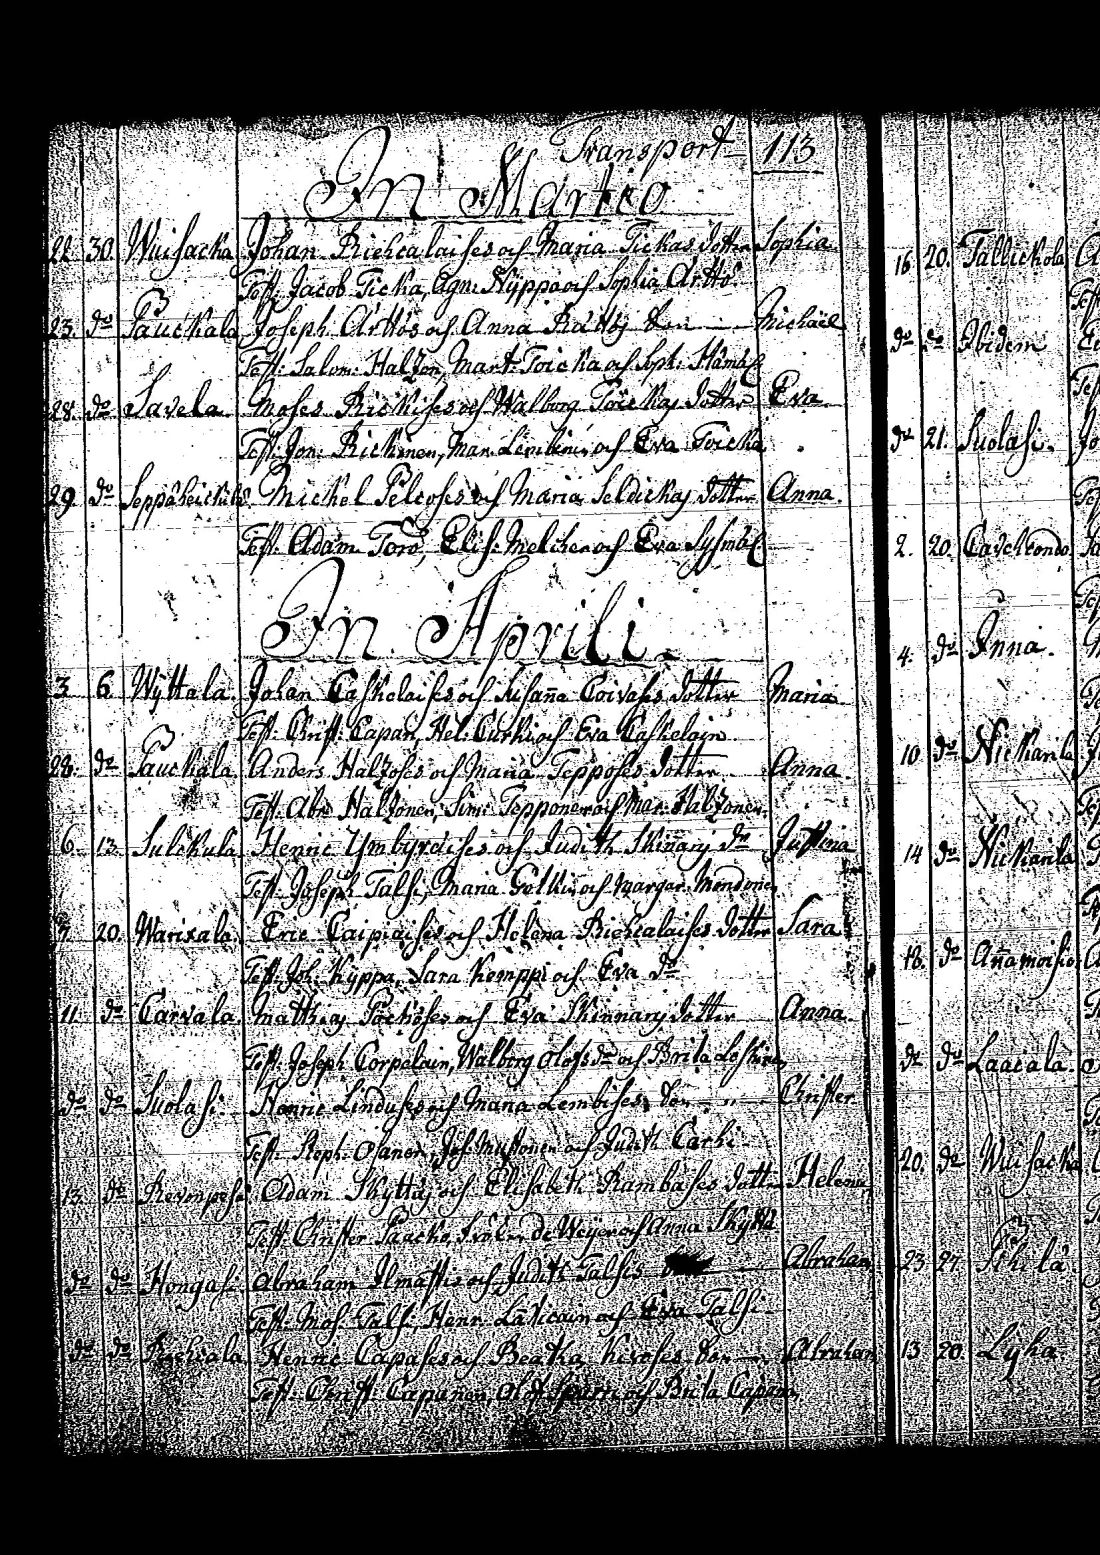 Transport 113
In Martio
22 30. Wuisacka Johan Riehcalaises och Maria Tickas dotter Sophia
Test: Jacob Ticka, Agn: Nyppa och Sophia Arttö.
23. do Pauckala Joseph Arttös och Anna Son Michaël
Test: Salom: Halzon, Mart: Toicka och Soph:
28. do Savela. Moses Rickises och Walborg Toickas dotter Eva.
Test: Jon: Rickinen, Mar: Lembin: och Eva Toicka
29 do Michel Peltoses och Maria Seldickas dotter Anna.
Test: Adam Toro, Elis: Melcher och Eva
In Aprili.
3 6 Wÿttala. Johan Caskelaises och Susaña Coivases dotter Maria
Test: Christ: Capan, Hel: Curki och Eva Caskelain
28. do Pauckala. Anders Halzoses och Maria Tepposes dotter Anna.
Test: Abr: Halzonen, Sim: Tepponen och Mar: Halzonen.
6. 13. Sulckula. Henric och Judith Skiñarj dr Justina
Test: Joseph Talsi, Maria och Margar: Mondonen
7. 20. Warixala. Eric Caipiaises och Helena Riehcalaises dotter Sara
Test: Joh: Kyppa, Sara Kemppi och Eva do
11 do Carvala. Matthias Pöchöses och Eva Skinnarj dotter Anna.
Test: Joseph Corpelain, Walborg Olofsdr och Brita Leskinen
do do Suolasi. Henric Linduses och Maria Lembises Son Christer
Test: Steph: Osanen, Jos: Mustonen och Judith Carhi
13. do Adam Skyttäs och Elisabeth Rambases dotter Helena
Test: Christer Paacko, de Weijer och Anna Skyttä
do do Hongasi. Abraham Ilmastis och Judith Talsis Abraham
Test: Mos: Talsi, Henr: Lavicain och Eva Talsi
do do Riehcala Henric Capases och Beatha Hiroses Son Abraham
Test: Christ: Capanen, Olof och Brita Capan:
16. 20. Tallickala
do do Ibidem
do 21. Suolasi.
2. 20. Cavchcondo
4. do Inna.
10 do Nickarila
14 do Nickarila
18. do Añamoisio.
do do Laacala.
20. do Wuisacka
23 27.
13 20 Lyha.